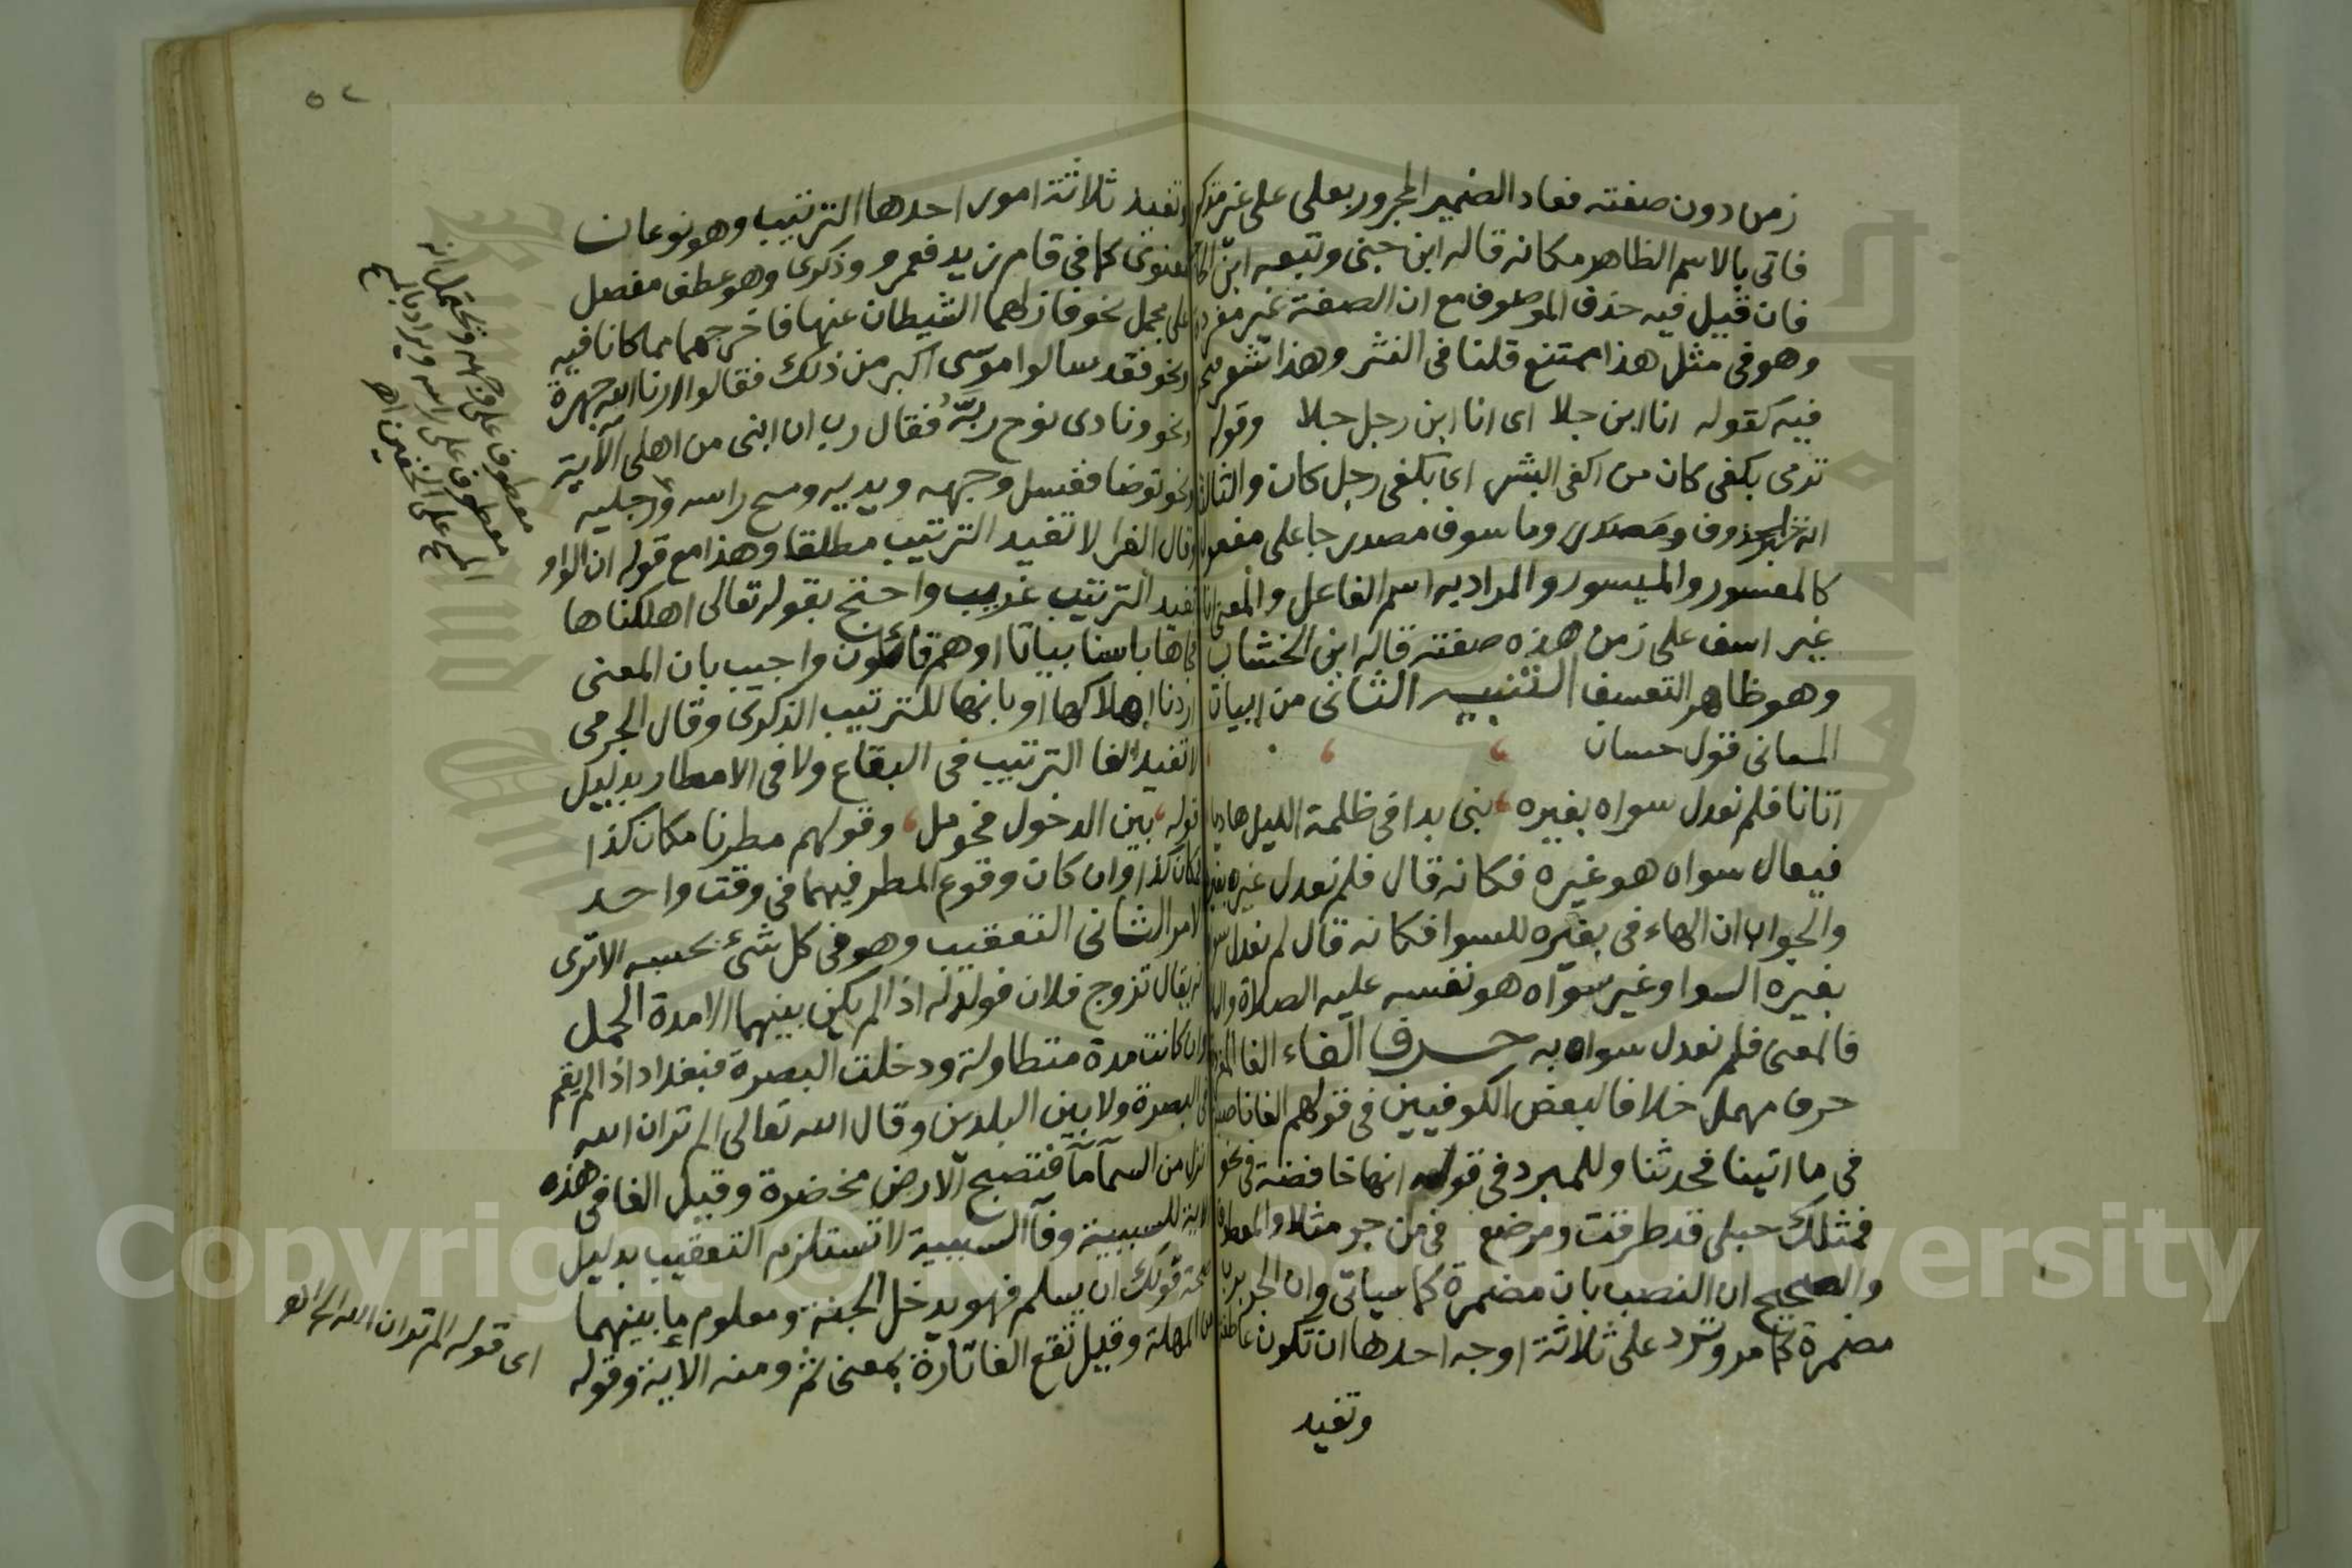 زمن دون صفته فعاد الضمير المجرور بعلى على غير مذكور
فاتى بالاسم الظاهر مكانه قاله ابن جنى وتبعه ابن الحا
فان قيل فيه حذف الموصوف مع ان الصفة غير مفردة
وهو فى مثل هذا ممتنع قلنا فى النثر وهذا شعر فيجوز
فيه كقوله انا ابن جلا اى انا ابن رجل جلا وقوله
ترمى بكفى كان من اكفى البشر اى بكفى رجل كان والثالث
انه خبر لمحذوف ومصدرى وما سوف مصدر جا على مفعول
كالمعسور والميسور والمراد به اسم الفاعل والمعنى انا
غير اسف على زمن هذه صفته قاله ابن الخشاب
وهو ظاهر التعسف التنبيه الثانى من ابيات
المعانى قول حسان
اتانا فلم نعدل سواه بغيره نبى بدا فى ظلمة الليل هاديا
فيقال سواه هو غيره فكانه قال فلم نعدل غيره بغيره
والجواب ان الهاء فى بغيره للسوا فكانه قال لم نعدل سواه
بغيره السوا وغير سواه هو نفسه عليه الصلاة والسلام
فالمعنى فلم نعدل سواه به حرف الفاء الفا المفردة
حرف مهمل خلافا لبعض الكوفيين فى قولهم الفا ناصبة
فى ما اتينا فتحدثنا وللمبرد فى قوله انها خافضة فى نحو
فمثلك حبلى قد طرقت ومرضع فى من جر مثلا والمعطوف
والصحيح ان النصب بان مضمرة كما سياتى وان الجر برب
مضمرة كما مر وترد على ثلاثة اوجه احدها ان تكون عاطفة
وتفيد
وتفيد ثلاثة امور احدها الترتيب وهو نوعان
معنوى كما فى قام زيد فعمرو وذكرى وهو عطف مفصل
على مجمل نحو فازلهما الشيطان عنها فاخرجهما مما كانا فيه
ونحو فقد سالوا موسى اكبر من ذلك فقالوا ارنا الله جهرة
ونحو ونادى نوح ربه فقال رب ان ابنى من اهلى الآية
ونحو توضا فغسل وجهه ويديه ومسح راسه ورجليه
وقال الفرا لا تفيد الترتيب مطلقا وهذا مع قوله ان الواو
تفيد الترتيب غريب واحتج بقوله تعالى اهلكناها
فجاها باسنا بياتا او هم قائلون واجيب بان المعنى
اردنا اهلاكها او بانها للترتيب الذكرى وقال الجرمى
لا تفيد الفا الترتيب فى البقاع ولا فى الامطار بدليل
قوله بين الدخول فحومل وقولهم مطرنا مكان كذا
فمكان كذا وان كان وقوع المطر فيهما فى وقت واحد
الامر الثانى التعقيب وهو فى كل شئ بحسبه الا ترى
انه يقال تزوج فلان فولد له اذا لم يكن بينهما الا مدة الحمل
وان كانت مدة متطاولة ودخلت البصرة فبغداد اذا لم يقم
فى البصرة ولا بين البلدين وقال الله تعالى الم تر ان الله
انزل من السمآ مآ فتصبح الارض مخضرة وقيل الفا فى هذه
الاية للسببية وفآ السببية لا تستلزم التعقيب بدليل
صحة قولك ان يسلم فهو يدخل الجنة ومعلوم ما بينهما
من المهلة وقيل تقع الفا تارة بمعنى ثم ومنه الاية وقوله
معطوف على وجهه ويحتمل انه
معطوف على راسه ويراد بالمسح
المسح على الخفين اھ
اى قوله الم تر ان الله الى اخره
٥٢
Copyright © King Saud University